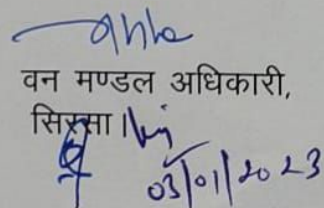 वन मण्डल अधिकारी,
सिरसा।
03/01/2023